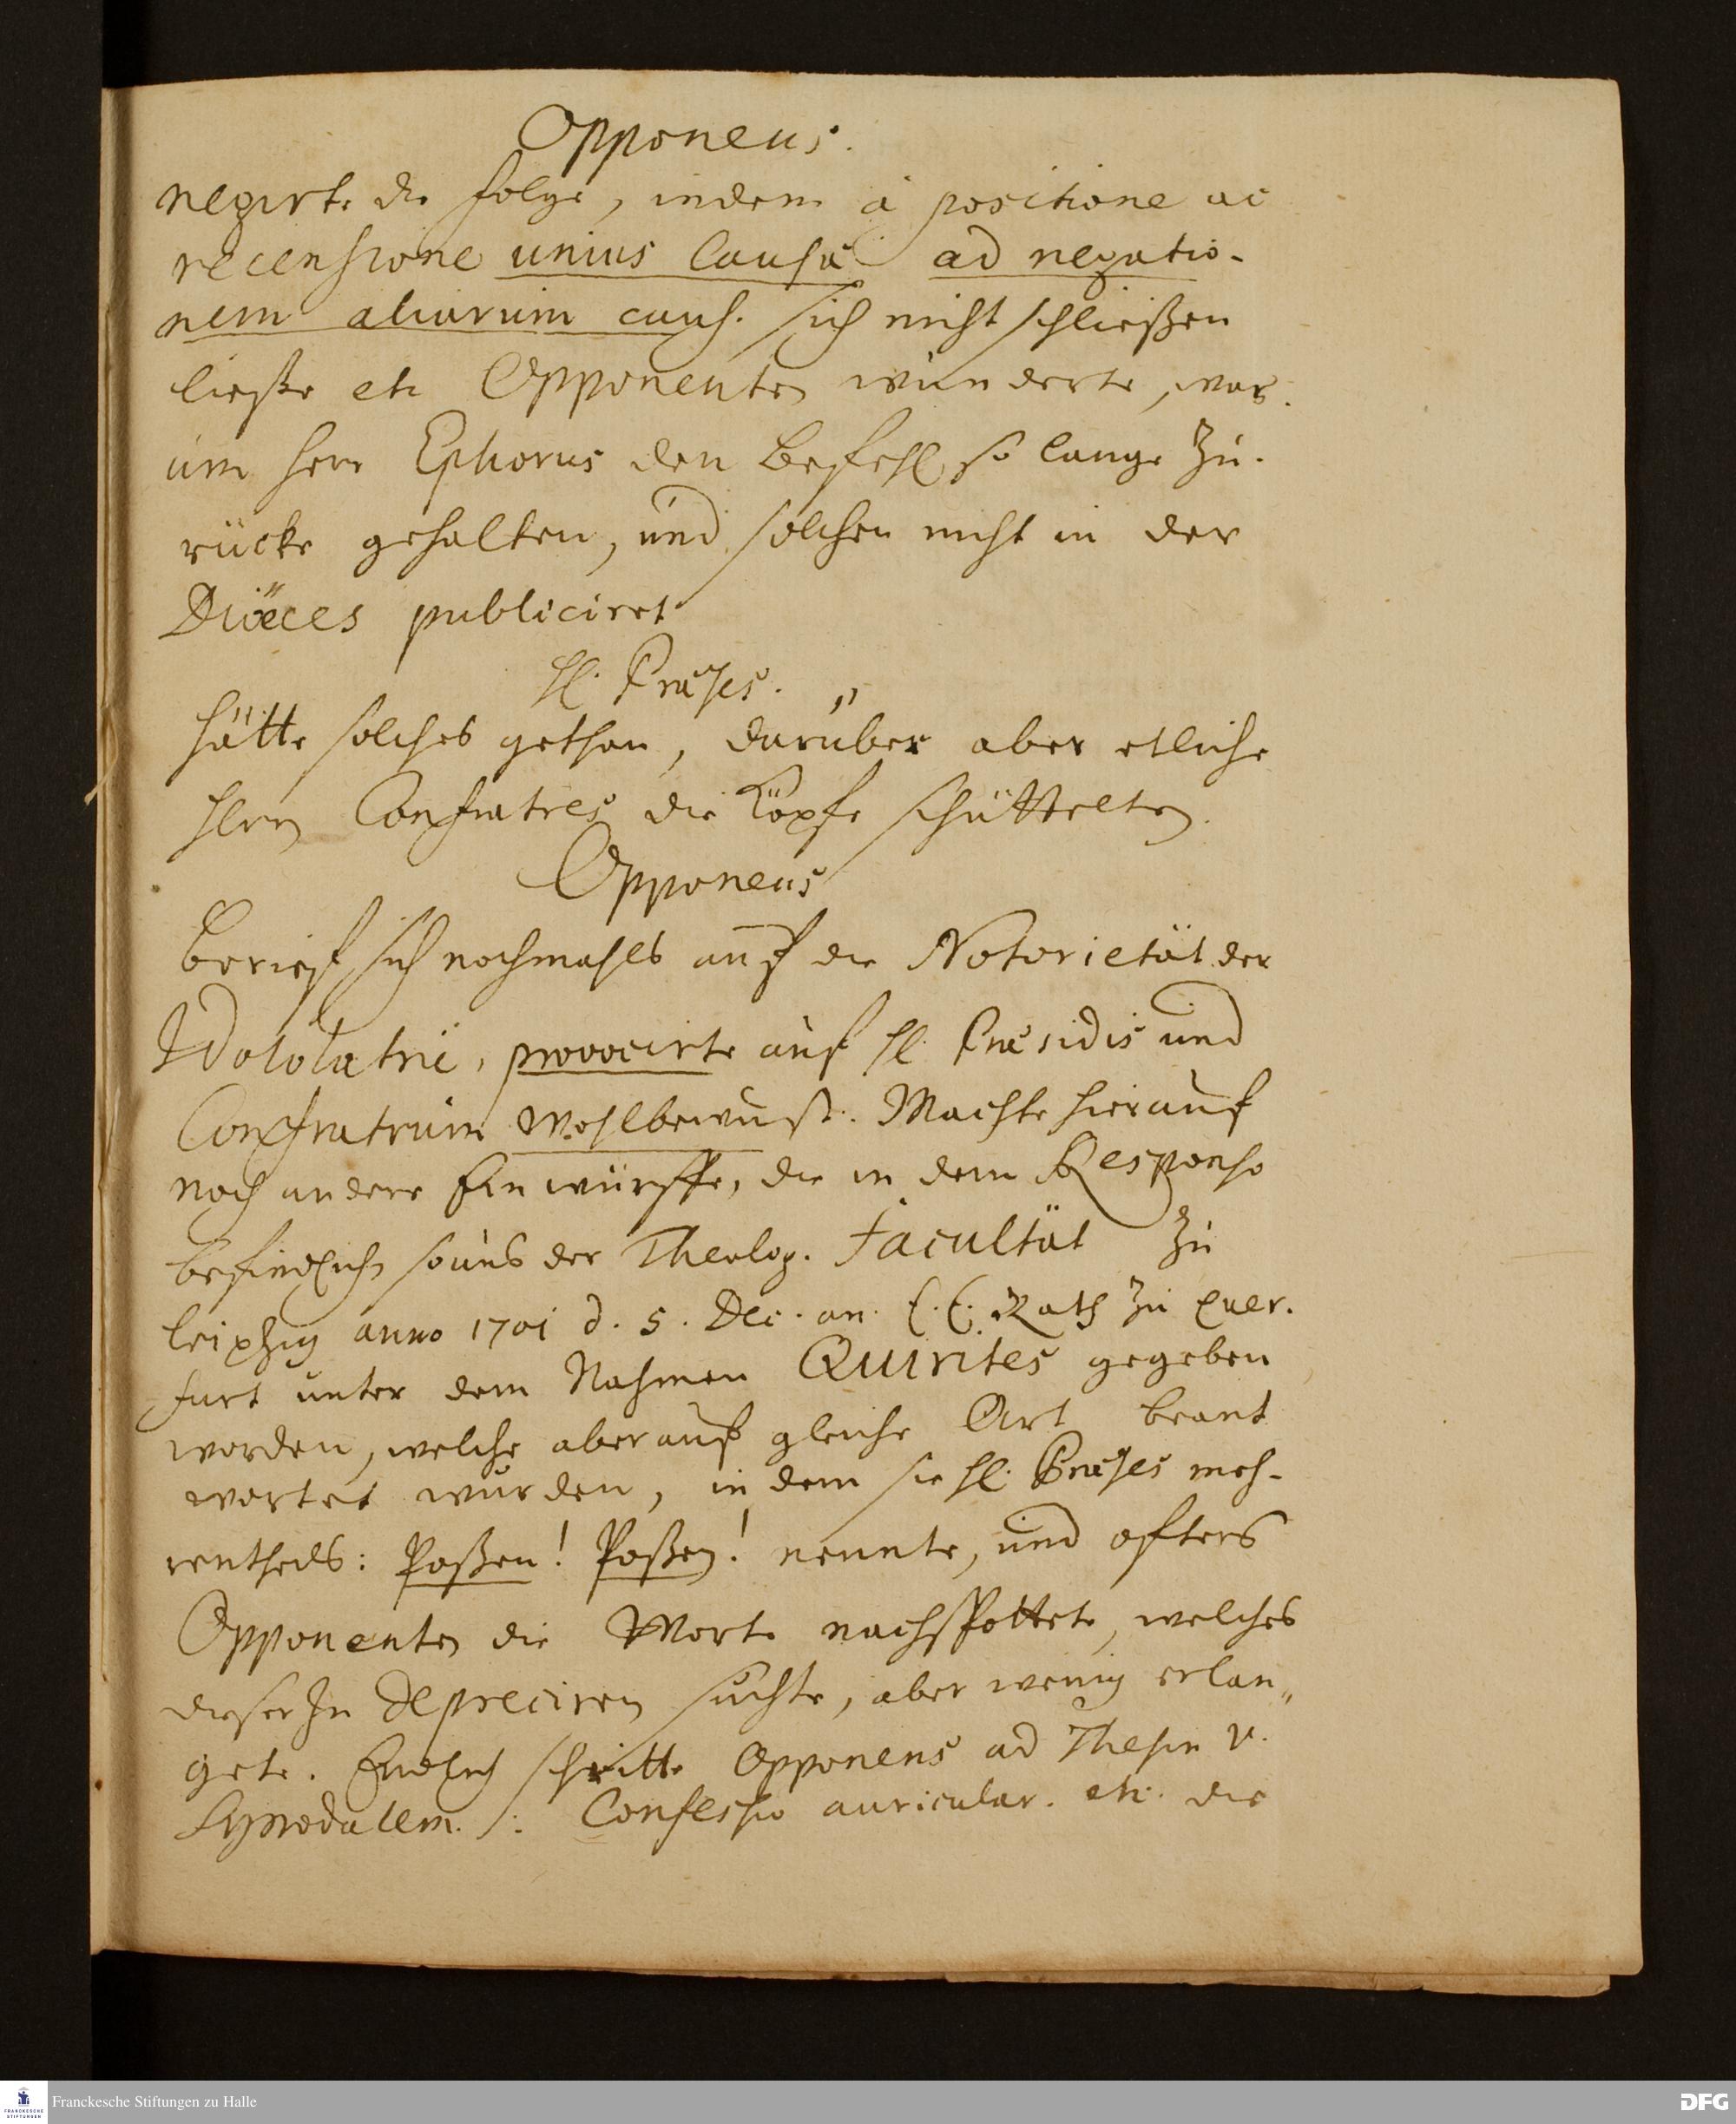 Opponens.
negirte die folge, indem à positione ac
recensione unius causæ ad negatio-
nem aliarum caus. sich nicht schließen
ließe etc Opponenten wunderte, war-
um Herr Ephorus den Befehl so lange zu-
rücke gehalten, und solchen nicht in der
Diöeces publiciret
Hl. Præses.
hätte solches gethan, darüber aber etliche
Hern Confratres die Köpfe schüttelten.
Opponens
Berief sich nochmahls auf die Notorietät der
Idololatrie, provocirte auf Hl. Præsidis und
Confratrum Wohlbewust. Machte hierauf
noch andere Einwürffe, die in dem Responso
befindlich so aus der Theolog. Facultät zu
Leipzig anno 1701 d. 5. Dec. an E. E. Rath zu Quer-
furt unter dem Nahmen Quirites gegeben
worden, welche aber auf gleiche Art beant
wortet wurden, in dem sie Hl. Præses meh-
rentheils: Poßen! Poßen! nennte, und öfters
Opponenten die Worte nachspottete, welches
dieser zu depreciren suchte, aber wenig erlan„
gete. Endlich schritte Opponens ad Thesin V.
Synodalem. /: Confessio auricular. etc. die
Franckesche Stiftungen zu Halle
FRANCKESCHE
STIFTUNGEN
DFG